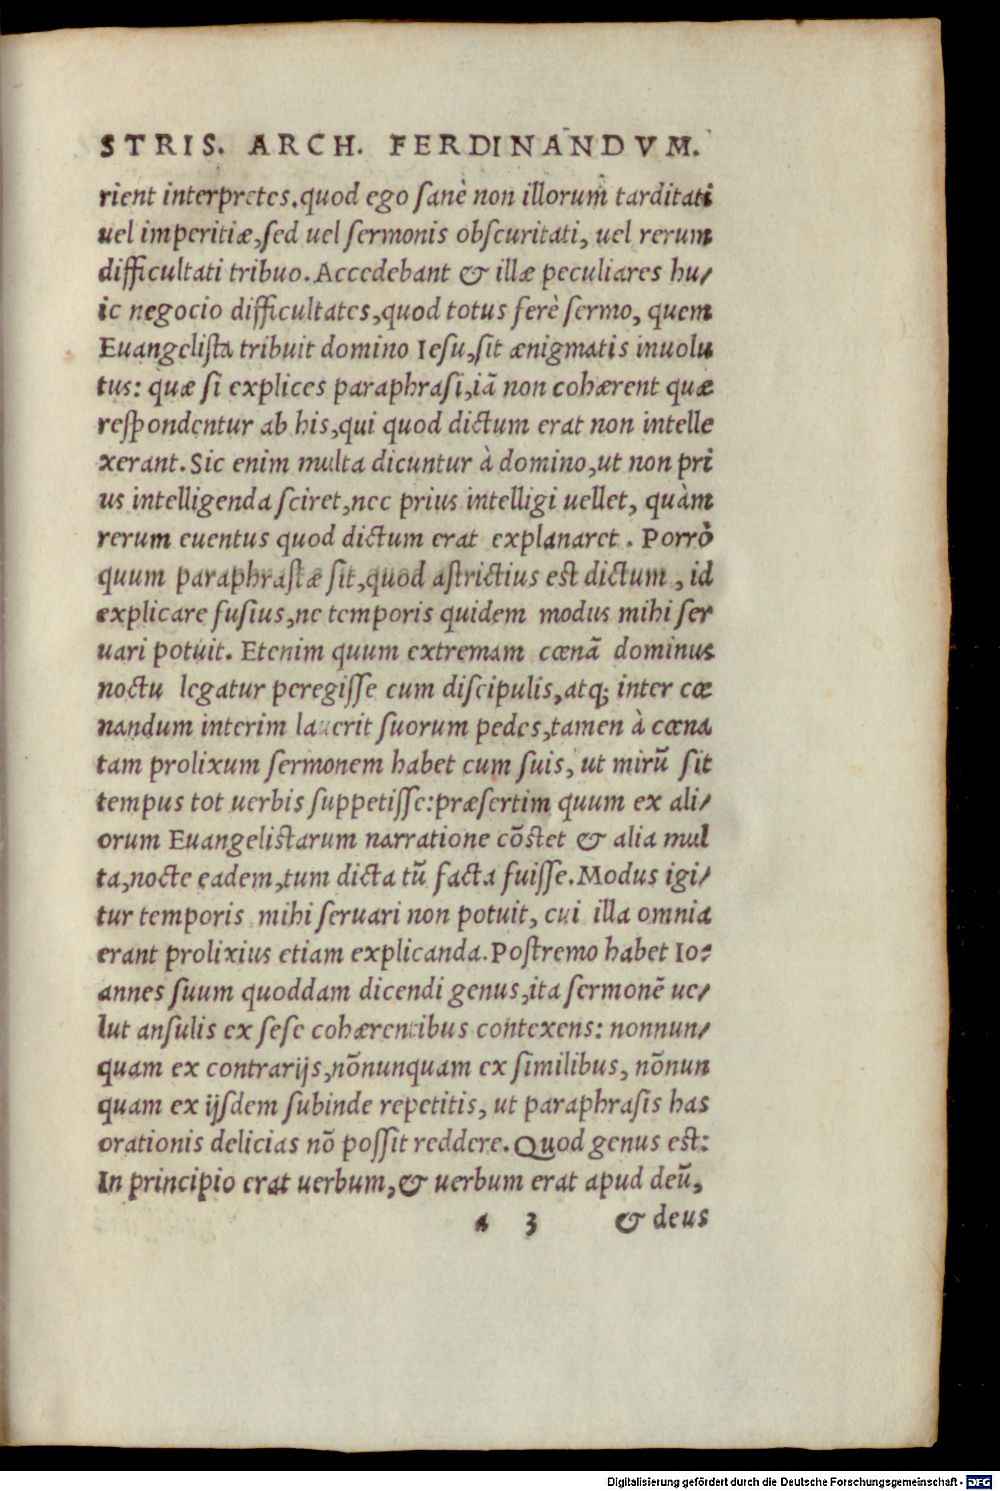 STRIS. ARCH. FERDINANDVM.
rient interpretes.quod ego sanè non illorum tarditati
uel imperitiæ,sed uel sermonis obscuritati, uel rerum
difficultati tribuo.Accedebant & illæ peculiares hu/
ic negocio difficultates,quod totus ferè sermo, quem
Euangelista tribuit domino Iesu,sit ænigmatis inuolu
tus: quæ si explices paraphrasi,iã non cohærent quæ
respondentur ab his,qui quod dictum erat non intelle
xerant.Sic enim multa dicuntur à domino,ut non pri
us intelligenda sciret,nec prius intelligi uellet, quàm
rerum euentus quod dictum erat explanaret. Porrò
quum paraphrastæ sit,quod astrictius est dictum, id
explicare fusius,ne temporis quidem modus mihi ser
uari potuit. Etenim quum extremam cœnã dominus
noctu legatur peregisse cum discipulis,atq; inter cœ
nandum interim lauerit suorum pedes,tamen à cœna
tam prolixum sermonem habet cum suis, ut mirũ sit
tempus tot uerbis suppetisse:præsertim quum ex ali/
orum Euangelistarum narratione cõstet & alia mul
ta,nocte eadem,tum dicta tũ facta fuisse.Modus igi/
tur temporis mihi seruari non potuit, cui illa omnia
erant prolixius etiam explicanda.Postremo habet Io/
annes suum quoddam dicendi genus,ita sermonẽ ue/
lut ansulis ex sese cohærentibus contexens: nonnun/
quam ex contrarijs,nõnunquam ex similibus, nõnun
quam ex ijsdem subinde repetitis, ut paraphrasis has
orationis delicias nõ possit reddere.Quod genus est:
In principio erat uerbum,& uerbum erat apud deũ,
a 3 & deus
Digitalisierung gefördert durch die Deutsche Forschungsgemeinschaft - DFG